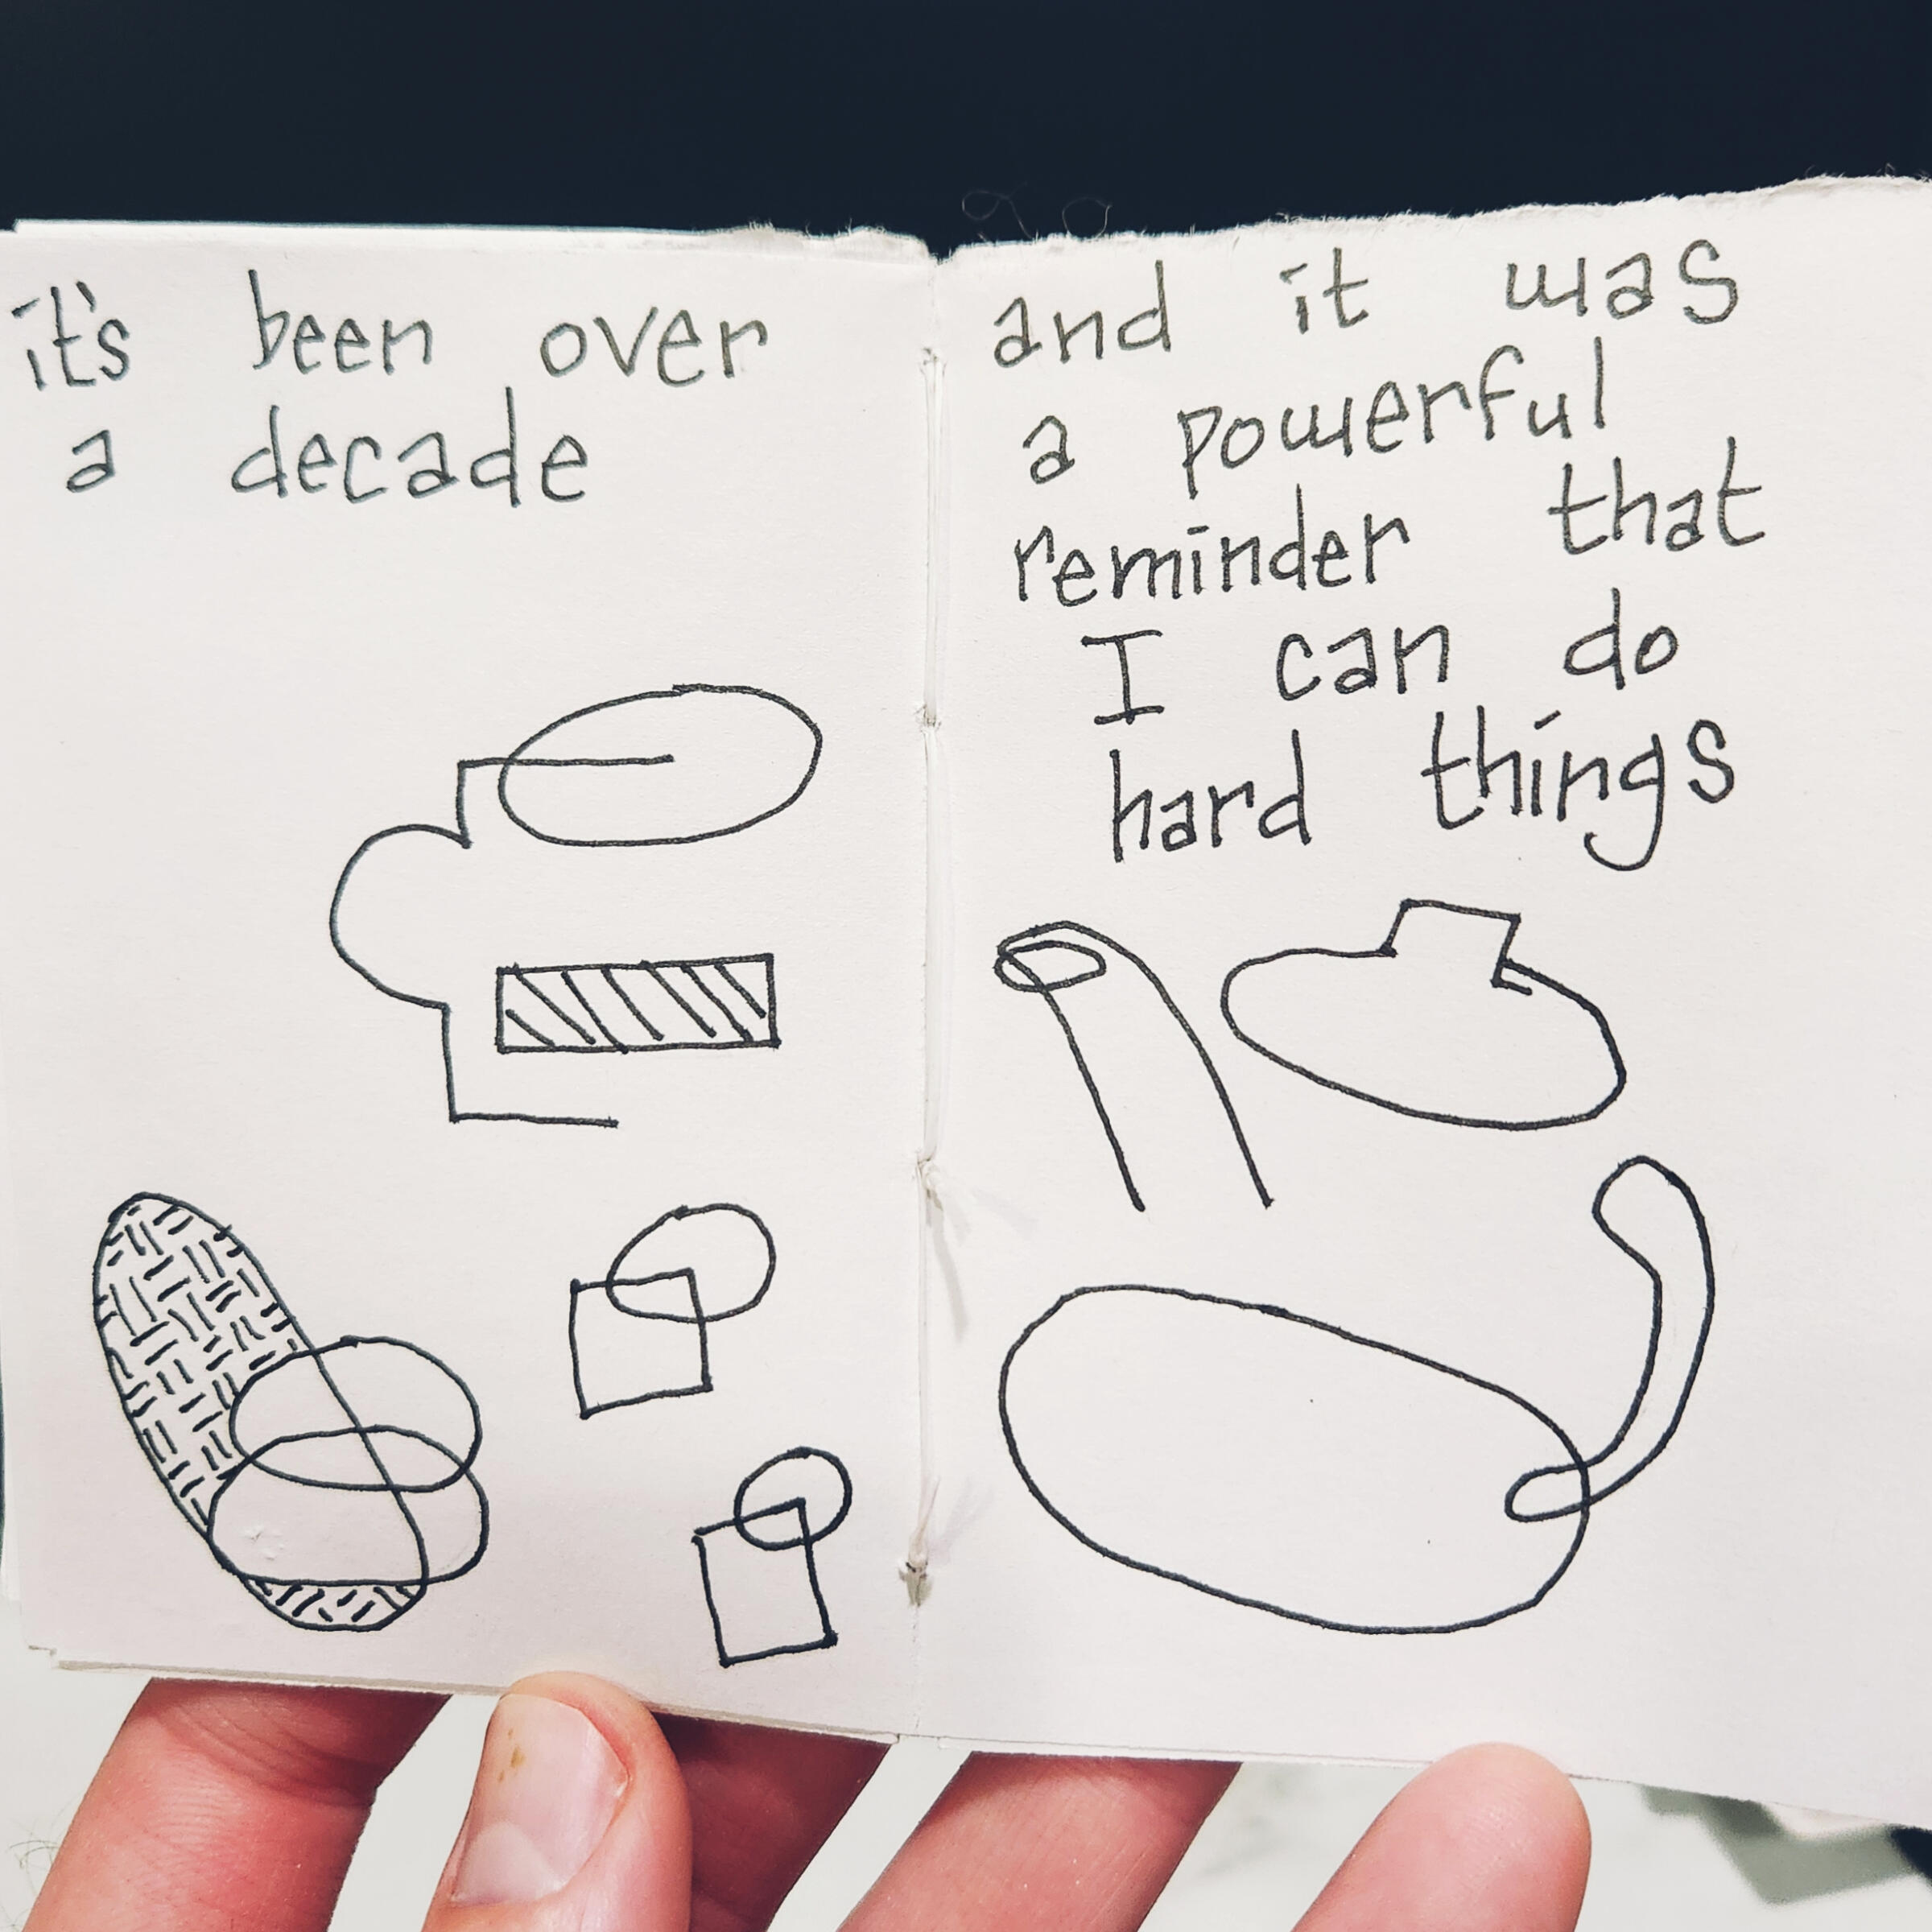 it's been over
a decade
and it was
a powerful
reminder that
I can do
hard things